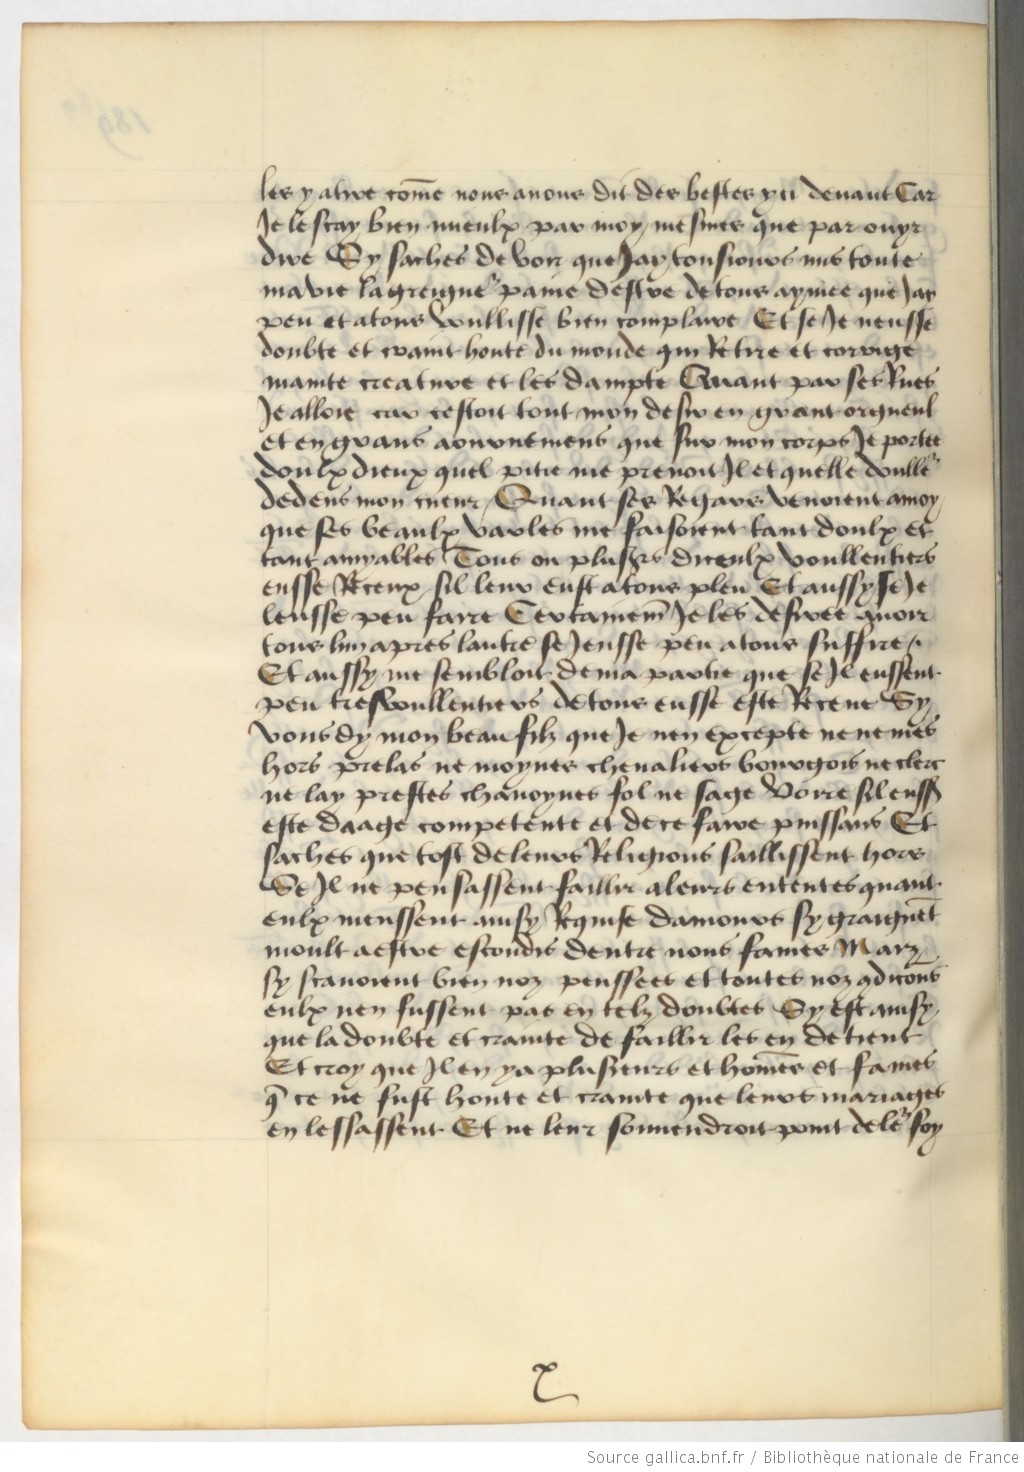 les y atire com̃e nous auons dit des bestes yci deuant Car
Je le scay bien mieulx par moy mesmes que par ouyr
dire Sy saches de voir que Jay tousiours mis toute
ma vie la greigneʳ paine destre de tous aymee que Jay
peu et a tous voullisse bien complaire Et se Je neusse
doubte et craint honte du monde qui Retire et corrige
mainte creature et les dampte Quant par ses Rues
Je alloie car cestoit tout mon desir en grant orgueul
et en grans aournemens que sur mon corps Je portee
doulx dieux quel pitie me prenoit Il et quelle doulleʳ
dedens mon cueur Quant ses Regars venoient a moy
que ses beaulx varles me faisoient tant doulx et
tant amyables Tous ou pluss̃rs diceulx voullentiers
eusse Receux sil leur eust a tous pleu Et aussy se Je
leusse peu faire Certainem̃ Je les desiree auoir
tous lun apres lautre se Jeusse peu a tous suffire
Et aussy me sembloit de ma partie que se Il eussent
peu tresvoullentiers de tous eusse este Receue Sy
vous dy mon beau filz que Je nen excepte ne nemes
hors prelas ne moynes cheualiers bourgois ne clerc
ne lay prestes chanoynes fol ne sage Voire sil euss̃
este daage competente et de ce faire puissans Et
saches que tost de leurs Religions saillissent hors
Se Il ne pensassent faillir a leurs ententes quant
eulx meussent ainsy Requise damours sy graignẽt
moult a estre escondis dentre nous fames Mary
sy scauoient bien noz pensees et toutes noz ꝯdicõns
eulx nen fussent pas en telz doubtes Sy est ainsy
que la doubte et crainte de faillir les en detient
Et croy que Il en y a plusieurs et hom̃es et fames
q̃ ce ne fust honte et crainte que leurs mariages
en lessassent Et ne leur souuendroit point de leʳ foy
Source gallica.bnf.fr / Bibliothèque nationale de France